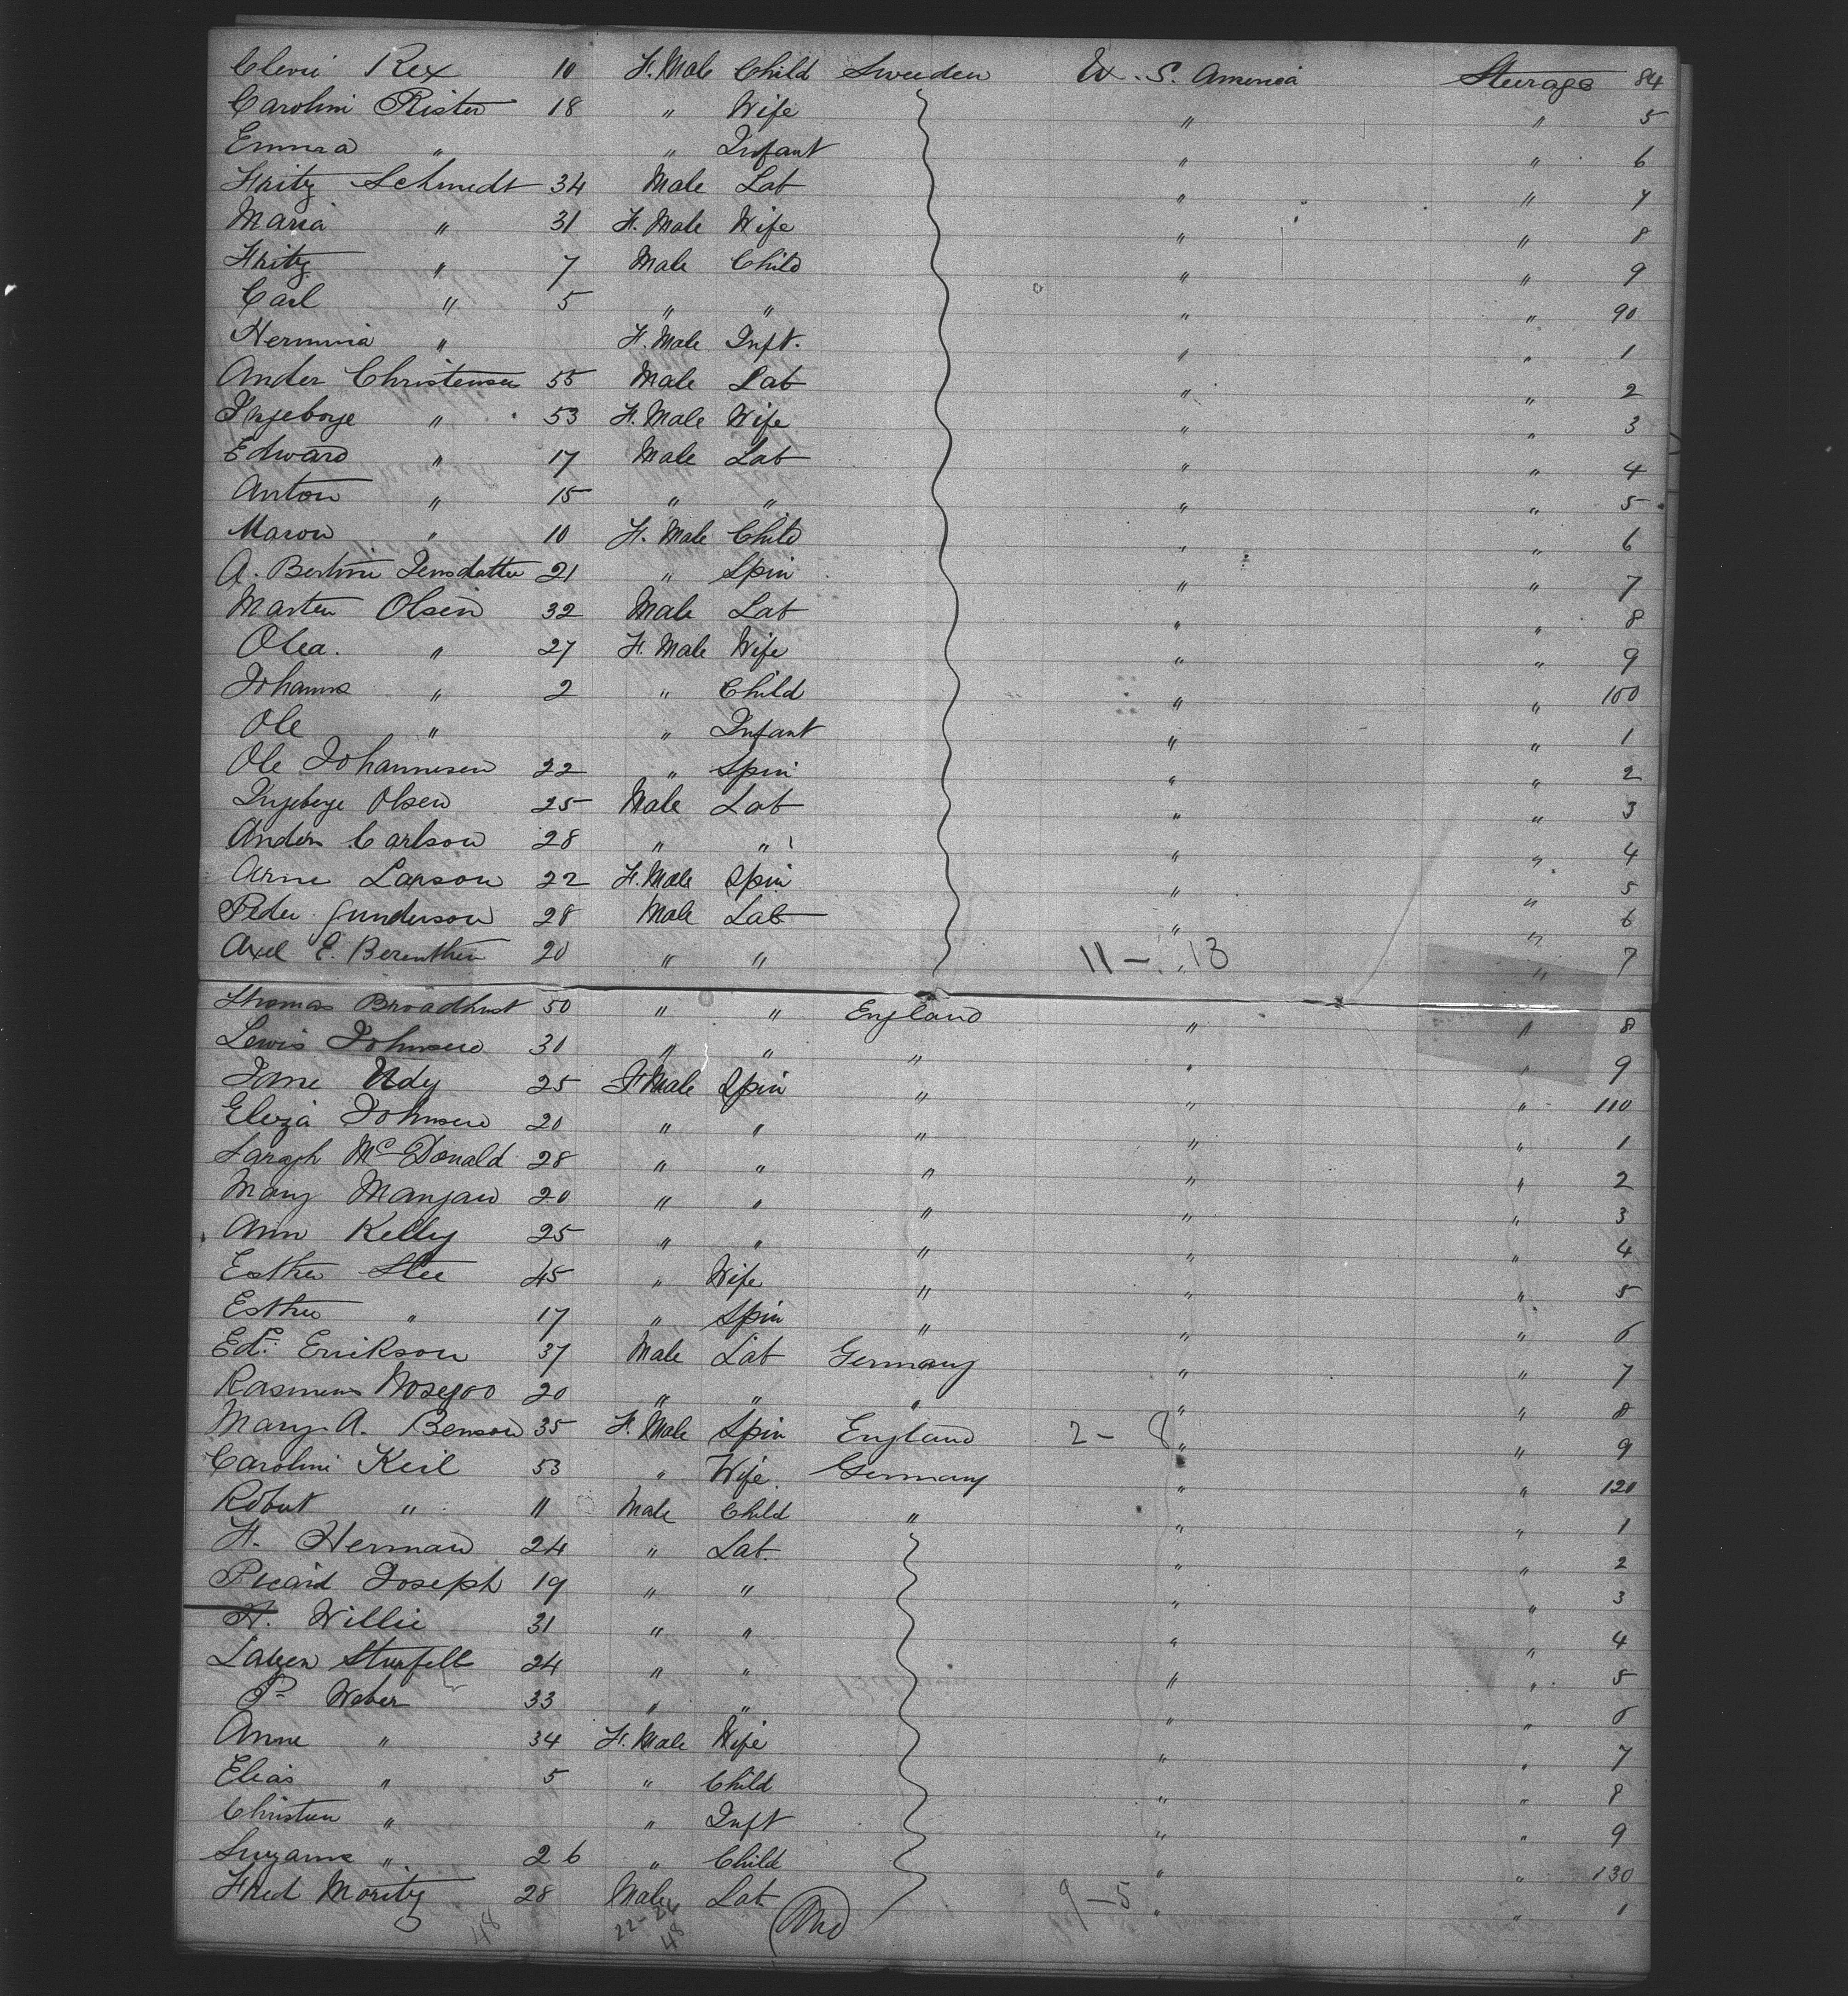 Clevii Rex 10 F. Male Child Sweeden U. S. America Steerage 84
Carolini Rister 18 " Wife " " 5
Emma " " Infant " " 6
Fritz Schmedt 34 Male Lab " " 7
Maria " 31 F. Male Wife " " 8
Fritz " 7 Male Child " " 9
Carl " 5 " " " " 90
Hermina " F. Male Inft. " " 1
Ander Christensen 55 Male Lab " " 2
Ingeborge " 53 F. Male Wife " " 3
Edward " 17 Male Lab " " 4
Anton " 15 " " " " 5
Maron " 10 F. Male Child " " 6
A. Bertini Jensdatter 21 " Spin " " 7
Marten Olsen 32 Male Lab " " 8
Olea. " 27 F. Male Wife " " 9
Johanns " 2 " Child " " 100
Ole " " Infant " " 1
Ole Johannesen 22 " Spin " " 2
Ingeborge Olsen 25 Male Lab " " 3
Anders Carlson 28 " " " " 4
Arne Larson 22 F. Male Spin " " 5
Peder Gunderson 28 Male Lab " " 6
Axel E. Berenthen 20 " " 11 - " 13 " 7
Thomas Broadhust 50 " " England " " 8
Lewis Johnson 31 " " " " " 9
Jane Udy 25 F Male Spin " " " 110
Eleza Johnson 20 " " " " " 1
Saragh McDonald 28 " " " " " 2
Mary Manjaw 20 " " " " " 3
Ann Kelly 25 " " " " " 4
Esther Slee 45 " Wife " " " 5
Esther " 17 " Spin " " " 6
Edd. Erikson 37 Male Lab Germany " " 7
Rasmus 20 " " " " " 8
Mary A. Benson 35 F. Male Spin England 2 - 8 " " 9
Carolini Keil 53 " Wife. Germany " " 120
Robert " 11 Male Child " " " 1
F. Herman 24 " Lab. " " 2
Picard Joseph 19 " " " " 3
H. Willie 31 " " " " 4
24 " " " " 5
P. Weber 33 " " " " 6
Anne " 34 F. Male Wife " " 7
Elias " 5 " Child " " 8
Christien " " Inft " " 9
Suzanne " 2 6 " Child " " 130
Fred Moritz 28 Male Lab 9 - 5 " " 1
48 22-26
48